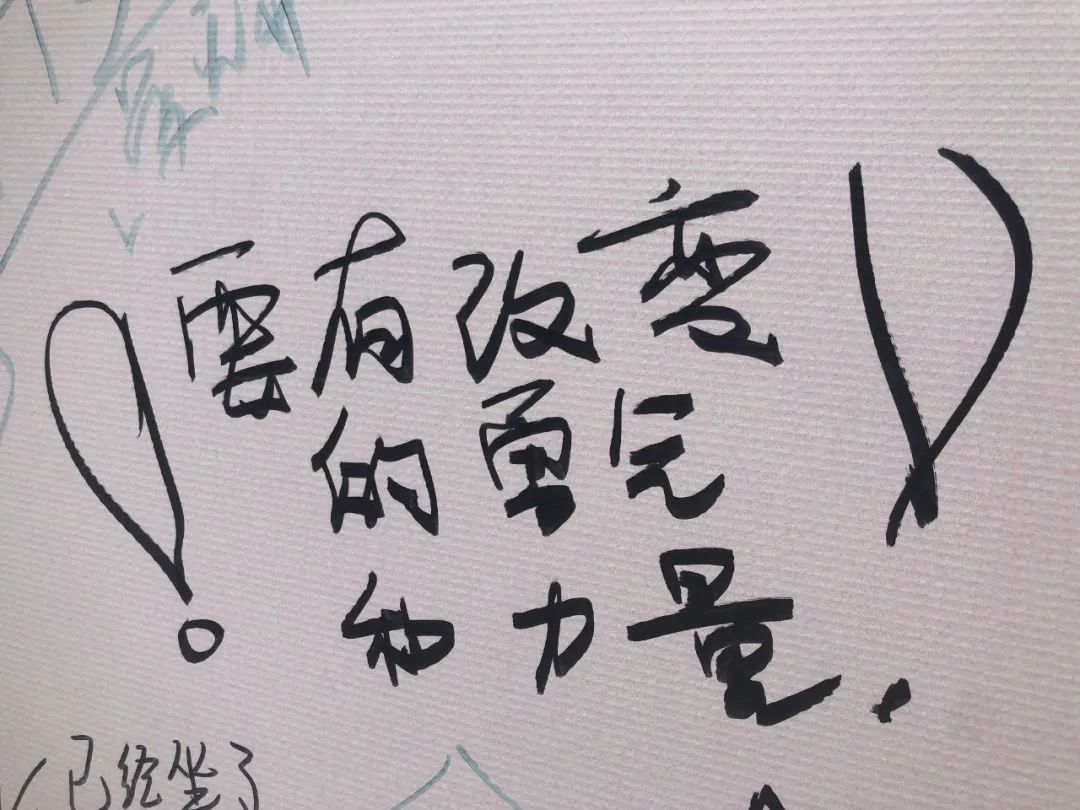 雲有改变
的勇气
和力量.
(已经坐了